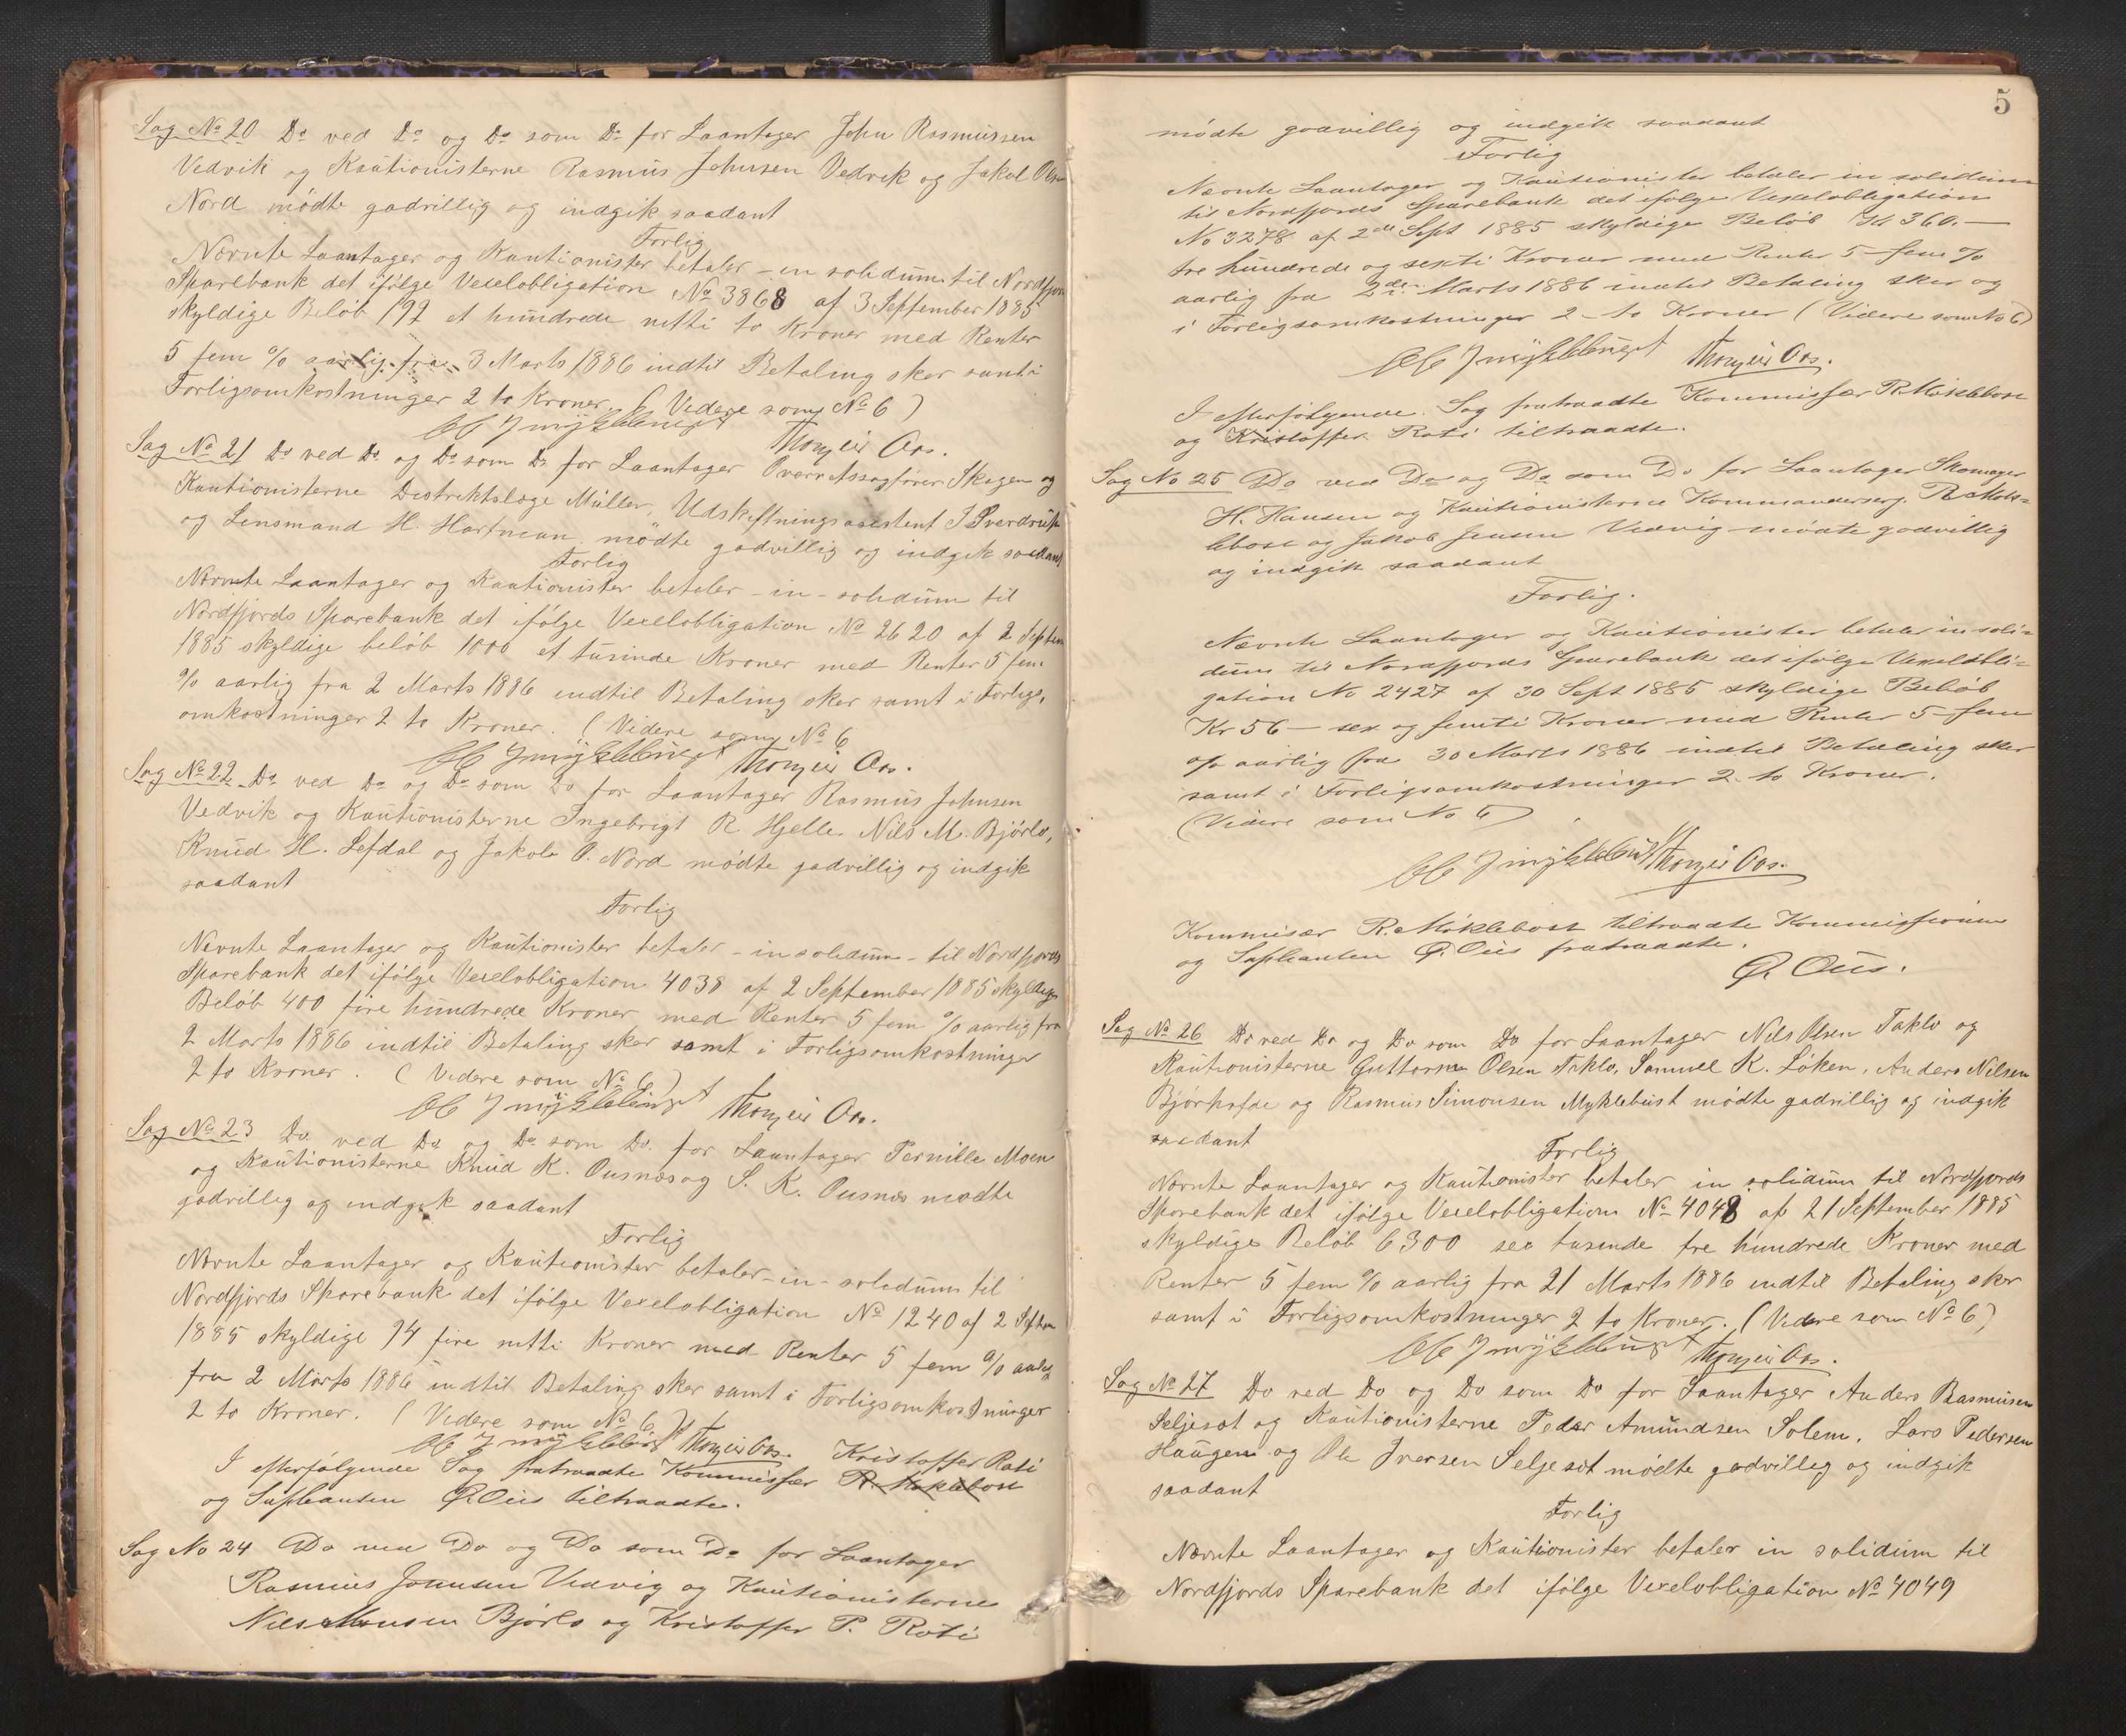 Sag No 20 Do ved Do og Do som Do for Laantager John Rasmussen
Vedvik og Kautionisterne Rasmus Johnsen Vedvik og Jakob Olsen
Nord mødte godvillig og indgik saadant
Forlig
Nævnte Laantager og Kautionister betaler – in solidum til Nordfjords
Sparebank det ifølge Vexelobligation No 3868 af 3 September 1885
skyldige Beløb 192 et hundrede nitti to Kroner med Renter
5 fem % aarlig fra 3 Marts 1886 indtil Betaling sker samt i
Forligsomkostninger 2 to Kroner. (Videre som No 6)
Thorgeir Aas.
Sag No 21 Do ved Do og Do som Do for Laantager Overretssagfører Skagen og
Kautionisterne Destriktslæge Müller, Udskiftningsasestent J Sverdrup
og Lensmand H. Hartman mødte godvillig og indgik saadant
Forlig
Nævnte Laantager og Kautionister betaler – in – solidum til
Nordfjords Sparebank det ifølge Vexelobligation No 2620 af 2 Septem
1885 skyldige beløb 1000 et tusinde Kroner med Renter 5 fem
% aarlig fra 2 Marts 1886 indtil Betaling sker samt i Forligs,
omkostninger 2 to Kroner. (Videre som No 6
Thorgeir Aas.
Sag No 22 Do ved Do og Do som Do for Laantager Rasmus Johnsen
Vedvik og Kautionisterne Ingebrigt R Hjelle Nils M. Bjørlo,
Knud H. Lefdal og Jakob O. Nord mødte godvillig og indgik
saadant
Forlig
Nævnte Laantager og Kautionister betaler – in solidum – til Nordfjords
Sparebank det ifølge Vexelobligation 4038 af 2 September 1885 skyldige
Beløb 400 fire hundrede Kroner med Renter 5 fem % aarlig fra
2 Marts 1886 indtil Betaling sker samt i Forligsomkostninger
2 to Kroner. (Videre som No 6)
Thorgeir Aas.
Sag No 23 Do ved Do og Do som Do. for Laantager Pernille Moen
og Kautionisterne Knud K. Ousnæs og S. K. Ousnæs mødte
godvillig og indgik saadant
Forlig
Nævnte Laantager og Kautionister betaler – in – solidum til
Nordfjords Sparebank det ifølge Vexelobligation No 1240 af 2 Septem
1885 skyldige 94 fire nitti Kroner med Renter 5 fem % aarlig
fra 2 Marts 1886 indtil Betaling sker samt i Forligsomkostninger
2 to Kroner. (Videre som No 6)
Thorgeir Aas. Kristoffer Roti
I efterfølgende Sag fratraadte Kommissær R. Møklebost
og Supleanten O. Ous tiltraadte.
Sag No 24 Do ved Do og Do som Do for Laantager
Rasmus Jonnsen Vedvig og Kautionisterne
Nils Monsen Bjørlo og Kristoffer P. Roti
5
mødte godvillig og indgik saadant
Forlig
Nævnte Laantager og Kautionister betaler in solidum
til Nordfjords Sparebank det ifølge Vexelobligation
No 3278 af 2den Sept 1885 skyldige Beløb Kr 360. –
tre hundrede og sexti Kroner med Renter 5 – fem %
aarlig fra 2den Marts 1886 indtil Betaling sker og
i Forligsomkostninger 2 – to Kroner (Videre som No 6)
Thorgeir Aas.
I efterfølgende Sag fratraadte Kommissær R. Møklebost
og Kristoffer Roti tiltraadte.
Sag No 25 Do ved Do og Do som Do for Laantager Skomager
H. Hansen og Kautionisterne Kommandersrg. R. Møk=
lebost og Jakob Jensen Vedvig mødte godvillig
og indgik saadant
Forlig.
Nævnte Laantager og Kautionister betaler in soli=
dum til Nordfjords Sparebank det ifølge Vexelobli=
gation No 2427 af 30 Sept 1885 skyldige Beløb
Kr 56 – sex og femti Kroner med Renter 5 – fem
o/o aarlig fra 30 Marts 1886 indtil Betaling sker
samt i Forligsomkostninger 2 – to Kroner.
(Videre som No 6)
Thorgeir Aas.
Kommisær R. Møklebost tiltraadte Kommissionen
og Supleanten O. Ous fratraadte.
O. Ous.
Sag No 26 Do ved Do og Do som Do for Laantager Nils Olsen Taklo og
Kautionisterne Guttorm Olsen Taklo, Samuel K. Løken, Anders Nilsen
Bjørhofde og Rasmus Simonsen Myklebust mødte godvillig og indgik
saadant
Forlig
Nævnte Laantager og Kautionister betaler in solidum til Nordfjords
Sparebank det ifølge Vexelobligation No 4048 af 21 September 1885
skyldige Beløb 6300 sex tusende tre hundrede Kroner med
Renter 5 fem % aarlig fra 21 Marts 1886 indtil Betaling sker
samt i Forligsomkostninger 2 to Kroner. (Videre som No 6)
Thorgeir Aas.
Sag No 27 Do ved Do og Do som Do for Laantager Anders Rasmusen
Seljeset og Kautionisterne Peder Amundsen Solem, Lars Pedersen
Haugen og Ole Iversen Seljeset mødte godvillig og indgik
saadant
Forlig
Nævnte Laantager og Kautionister betaler in solidum til
Nordfjords Sparebank det ifølge Vexelobligation No 4049